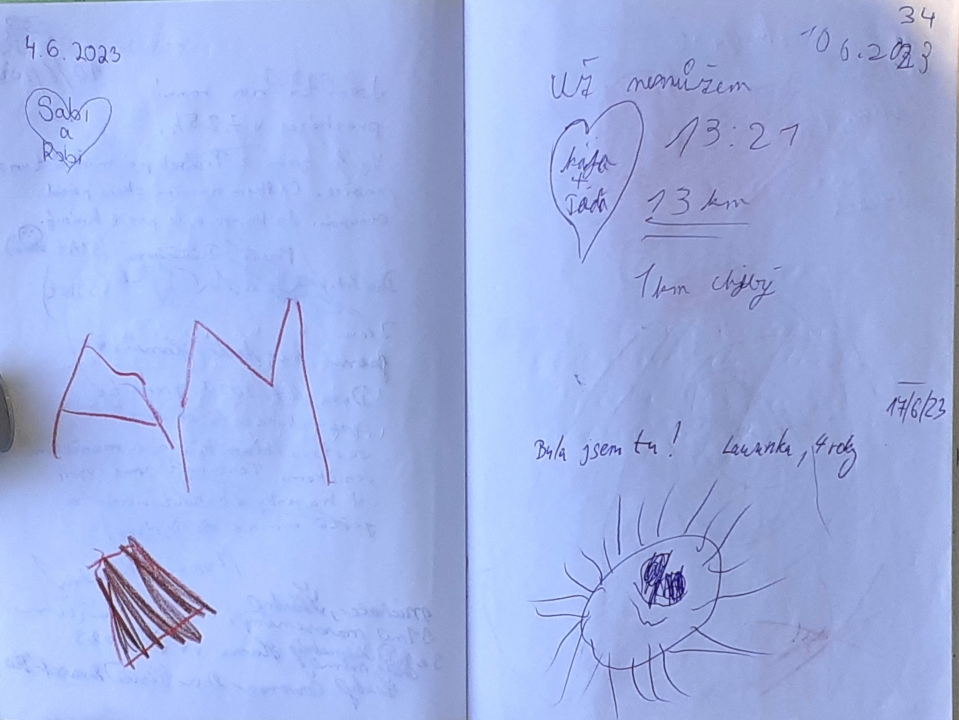 4.6.2023
Sabi
a
Robi
AM
34
10 6.2023
Už nemůžem
13:21
+
13 km
1 km chybý
17/6/23
Byla jsem tu! Laurinka, 4 roky